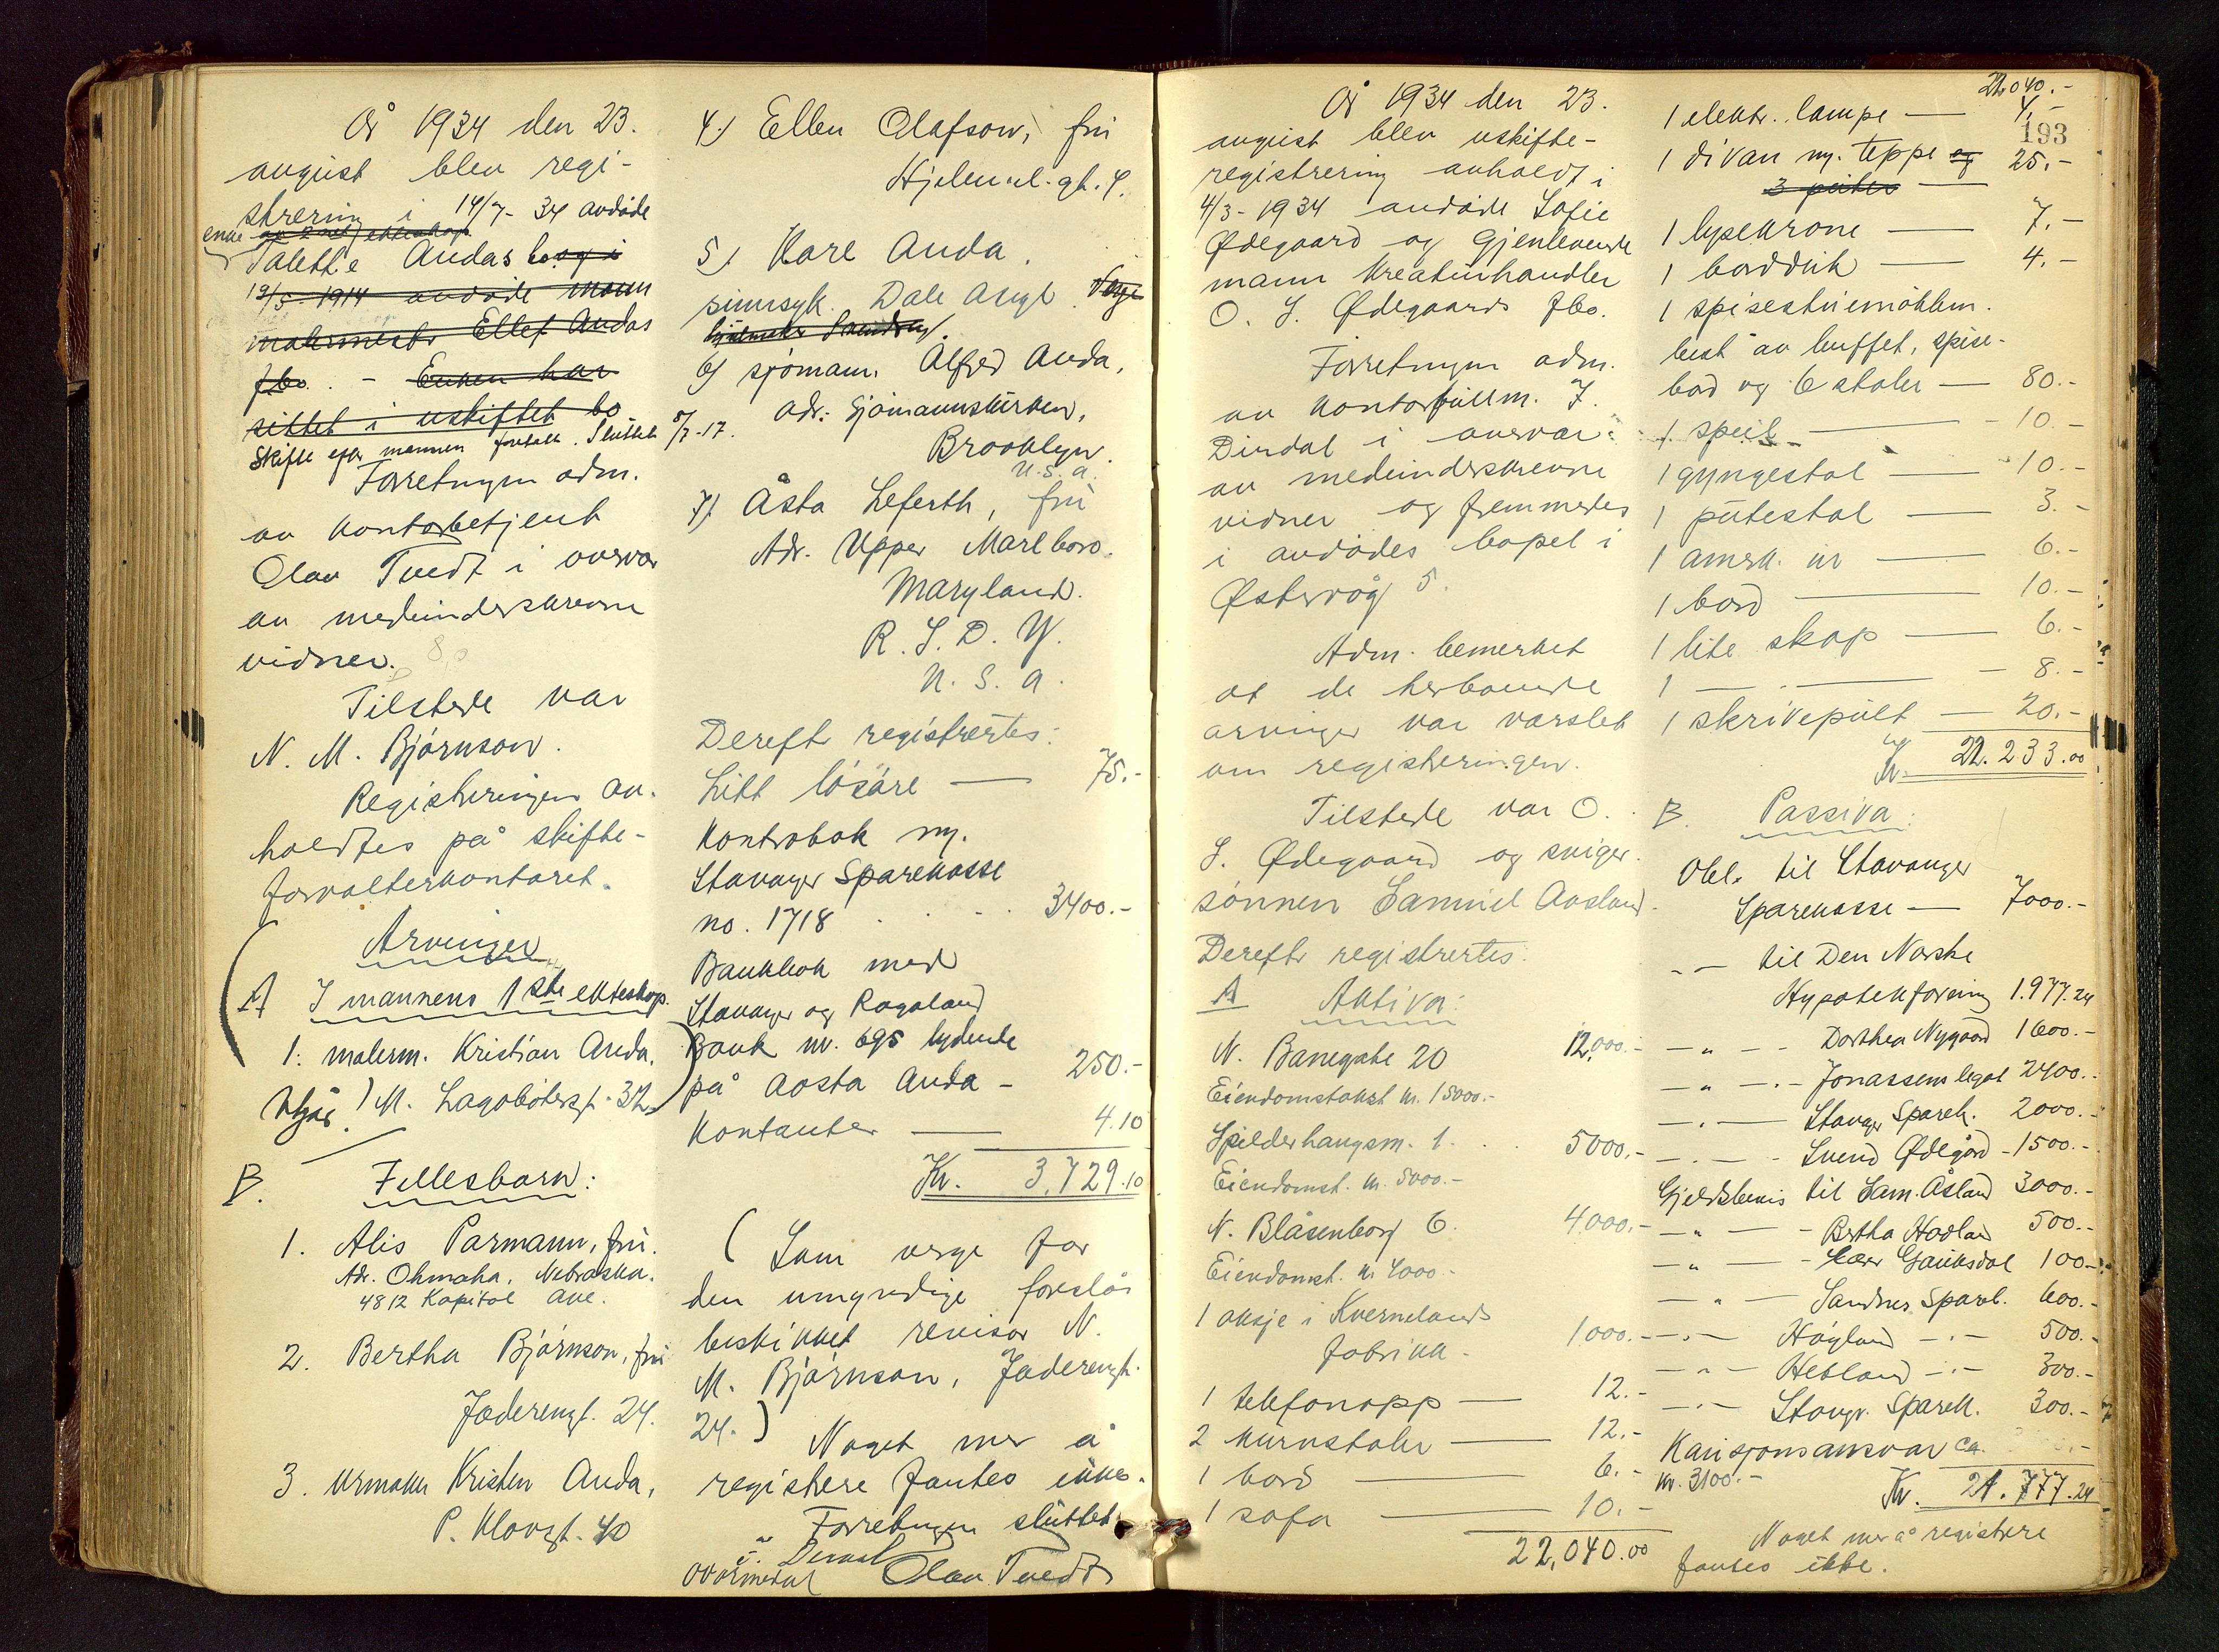 År 1934 den 23.
august blev regi-
strering i 14/7-34 avdøde
enke av 2net ekteskap
Talette Andas bo og i
19/5-1914 avdøde mann
malermester Ellef Andas
fbo. - Enken har
sittet i uskiftet bo
Skifte efter mannen foretatt. Sluttet 5/7-17.
Forretningen adm.
av kontorbetjent
Olav Tvedt i overvær
av medunderskrevne
vidner.
Tilstede var
N. M. Bjørnson.
Registreringen av-
holdtes på skifte-
forvalterkontoret.
Arvinger
A I mannens 1ste ekteskap.
1. malerm. Kristian Anda,
Utgår! M. Lagabøtersgt. 32.
B. Fellesbarn:
1. Alis Parmann, fru.
Adr. Ohmaha, Nebraska.
4812 Kapitol Ave.
2. Bertha Bjørnson, fru
Jæderengt. 24.
3. Urmaker Kristen Anda,
P. Klovgt. 40
4.) Ellen Olafson, fru
Hjelmel. gt. 4.
5.) Kare Anda.
sinnsyk. Dale Asyl. Verge
6) sjømann. Alfred Anda,
adr: Sjømannskirken,
Brooklyn.
U.S.A.
7.) Åsta Leferth, fru
Adr. Upper Marlboro.
Maryland.
R. F. D. Y.
U. S. A.
Derefter registrertes:
Litt løsøre — 75.-
Kontrabok m.
Stavanger Sparekasse
no. 1718 . . . . 3400.-
Bankbok med
Stavanger og Rogaland
Bank nr. 695 lydende
på Aosta Anda - 250.-
Kontanter — 4.10
Kr. 3.729.10
(Som verge for
den umyndige foreslås
beskikket revisor N.
M. Bjørnson, Jæderengt.
24.)
Noget mer å
registrere fantes ikke.
Forretningen sluttet.
Olav Tvedt
År 1934 den 23.
august blev uskifte-
registrering avholdt i
4/3-1934 avdøde Sofie
Ødegaard og gjenlevende
mann kreaturhandler
O. S. Ødegaards fbo.
Forretningen adm.
av kontorfullm. F.
Dirdal i overvær
av medunderskrevne
vidner og fremmedes
i avdødes bopel i
Østervåg 5.
Adm. bemerket
at de herboende
arvinger var varslet
om registreringen.
Tilstede var O.
S. Ødegaard og sviger-
sønnen Samuel Aasland.
Derefter registrertes:
A Aktiva:
N. Banegate 20 12,000.-
Eiendomstakst kr. 15000.-
Spilderhaugsm. 1. . . 5000.-
Eiendomst. kr. 5000.-
N. Blåsenborg 6. 4000.-
Eiendomst. kr. 4000.-
1 aksje i Kvernelands
fabrikk - 1000.-
1 telefonapp — 12.-
2 kurvstoler — 12.-
1 bord — 6.-
1 sofa — 10.-
22,040.00
22,040.-
193
1 elektr. lampe — 4,-
1 divan m. teppe og 25.-
3 puter —
1 lysekrone — 7.-
1 bordduk — 4.-
1 spisestuemøblem.
best av buffet, spise-
bord og 6 stoler — 80.-
1 speil — 10.-
1 gyngestol — 10.-
1 putestol — 3.-
1 amerk. ur — 6.-
1 bord — 10.-
1 lite skap — 6.-
1 — . — - 8.-
1 skrivepult — 20.-
Kr. 22.233.00
B. Passiva:
Obl. til Stavanger
Sparekasse — 7000.-
- - til Den Norske
Hypotekforening 1.977.24
- " - - Dorthea Nygård 1600.-
- " - . - Jonassens legat 2400.-
- . - Stavanger Sparek. 2000.-
- . - - Svend Ødegård - 1500.-
Gjeldsbevis til Sam. Åsland 3000.-
- " - - Bertha Hadland 500.-
- " - - Gauksdal 100.-
- " - Sandnes Spareb. 600.-
- " - Høyland - . - 500.-
- " - Hetland - . - 300.-
- . - Stavgr. Sparek. 300.-
Kausjonsansvar ca.
kr. 3100.-
Kr. 21.777.24
Noget mer å registrere
fantes ikke.